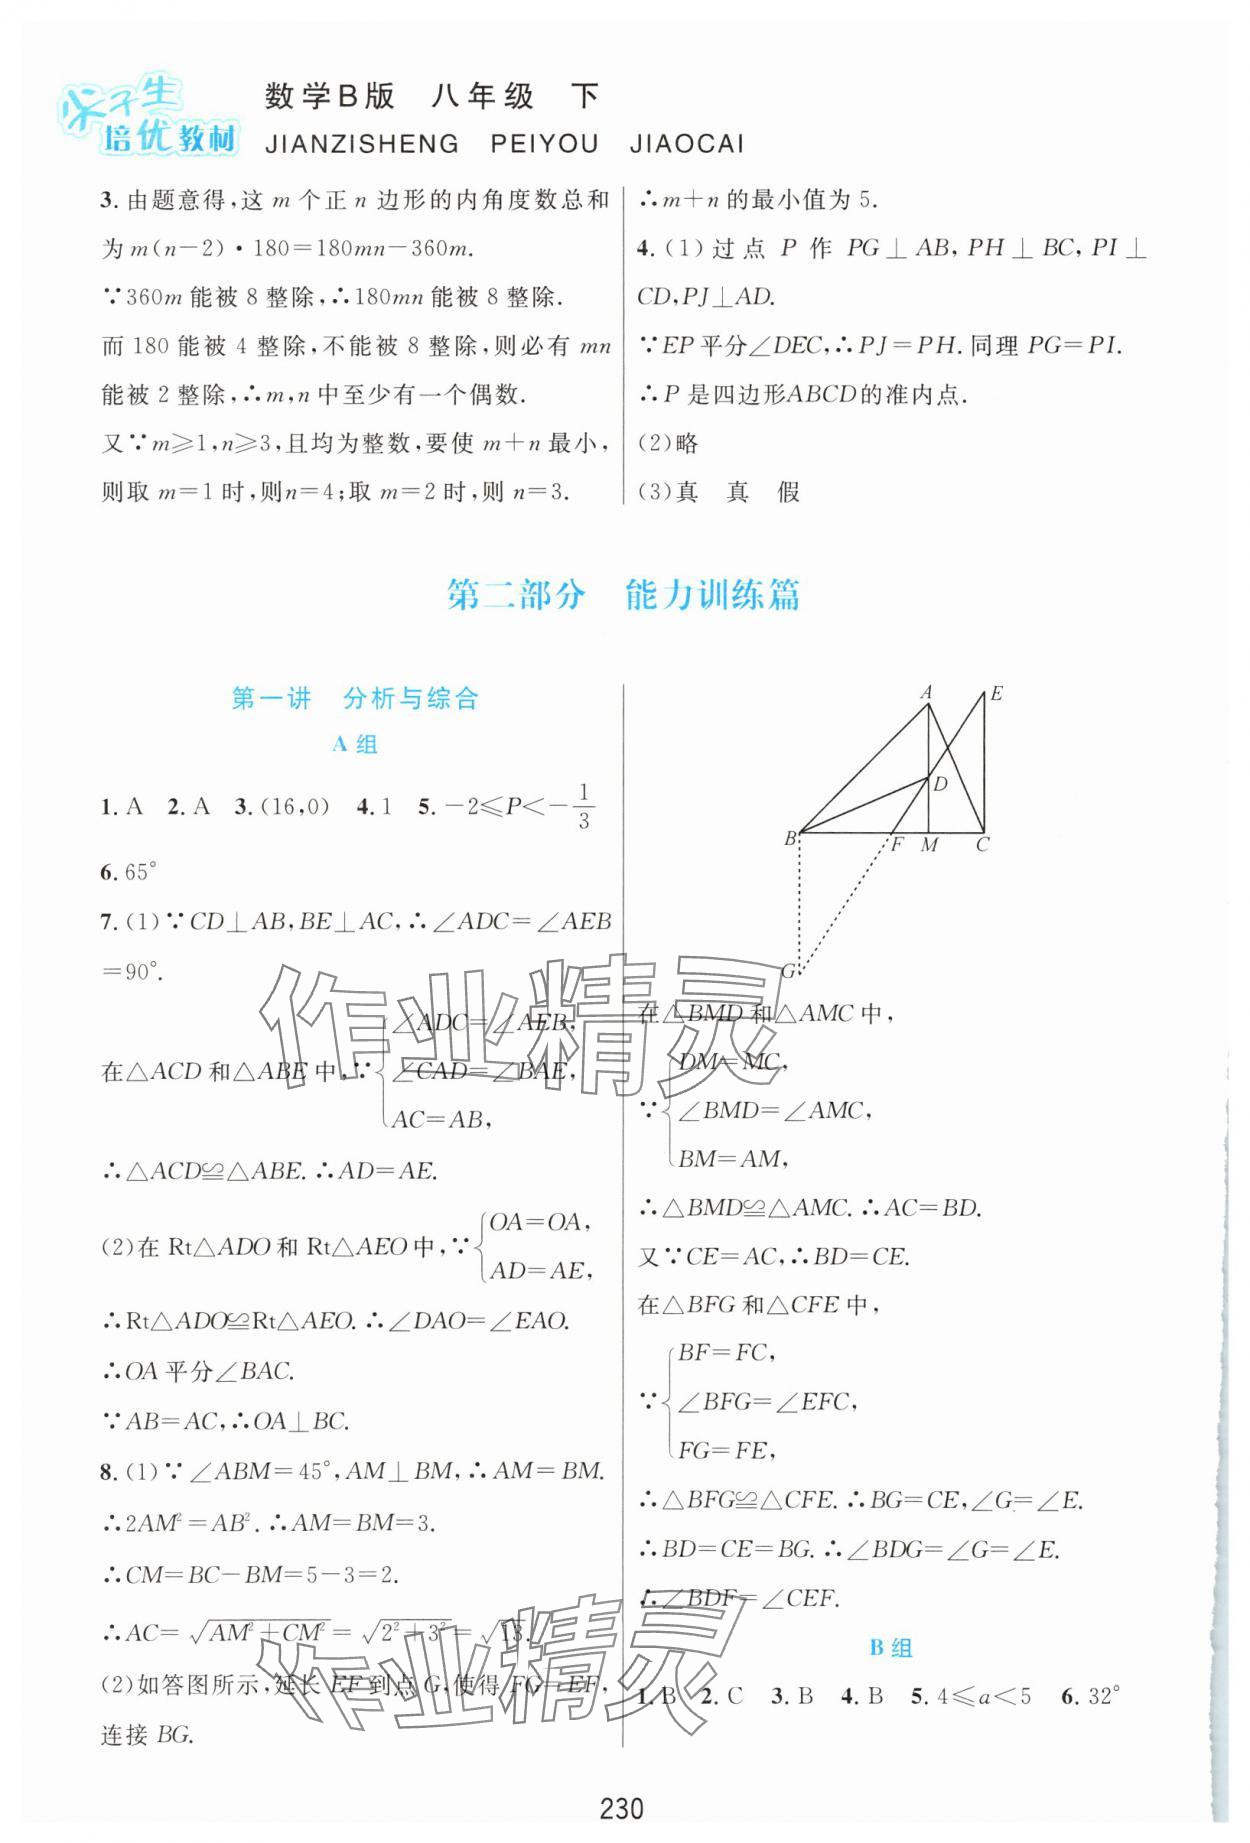 尖子生
培优教材
数学B版 八年级 下
JIANZISHENG PEIYOU JIAOCAI
3. 由题意得,这 m 个正 n 边形的内角度数总和
为 m(n-2)·180=180mn-360m.
∵360m 能被 8 整除,∴180mn 能被 8 整除.
而 180 能被 4 整除,不能被 8 整除,则必有 mn
能被 2 整除,∴m,n 中至少有一个偶数.
又∵m≥1,n≥3,且均为整数,要使 m+n 最小,
则取 m=1 时,则n=4;取 m=2 时,则 n=3.
∴m+n 的最小值为 5.
4. (1) 过点 P 作 PG⊥AB, PH⊥BC, PI⊥
CD,PJ⊥AD.
∵EP 平分∠DEC,∴PJ=PH. 同理 PG=PI.
∴P 是四边形ABCD的准内点.
(2)略
(3)真 真 假
第二部分 能力训练篇
第一讲 分析与综合
A 组
1. A 2. A 3. (16,0) 4. 1 5. -2≤P<-1/3
6. 65°
7. (1)∵CD⊥AB,BE⊥AC,∴∠ADC=∠AEB
=90°.
∠ADC=∠AEB,
在△ACD 和△ABE 中,∵ ∠CAD=∠BAE,
AC=AB,
∴△ACD≌△ABE. ∴AD=AE.
OA=OA,
(2)在 Rt△ADO 和 Rt△AEO 中,∵
AD=AE,
∴Rt△ADO≌Rt△AEO. ∴∠DAO=∠EAO.
∴OA 平分∠BAC.
∵AB=AC,∴OA⊥BC.
8. (1)∵∠ABM=45°,AM⊥BM,∴AM=BM.
∴2AM²=AB². ∴AM=BM=3.
∴CM=BC-BM=5-3=2.
∴AC=√(AM²+CM²)=√(2²+3²)=√13.
(2)如答图所示,延长 EF 到点 G,使得 FG=EF,
连接 BG.
A
E
D
B
F
M
C
G
在△BMD 和△AMC 中,
DM=MC,
∵ ∠BMD=∠AMC,
BM=AM,
∴△BMD≌△AMC. ∴AC=BD.
又∵CE=AC,∴BD=CE.
在△BFG 和△CFE 中,
BF=FC,
∵ ∠BFG=∠EFC,
FG=FE,
∴△BFG≌△CFE. ∴BG=CE,∠G=∠E.
∴BD=CE=BG. ∴∠BDG=∠G=∠E.
∴∠BDF=∠CEF.
B 组
1. B 2. C 3. B 4. B 5. 4≤a<5 6. 32°
作业精灵
作业精灵
230